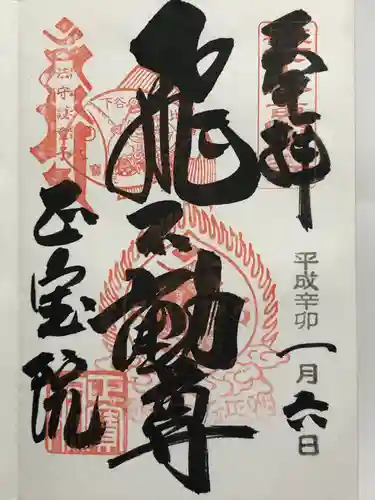 奉拝
平成辛卯
一月六日
飛不動尊
正宝院
下谷